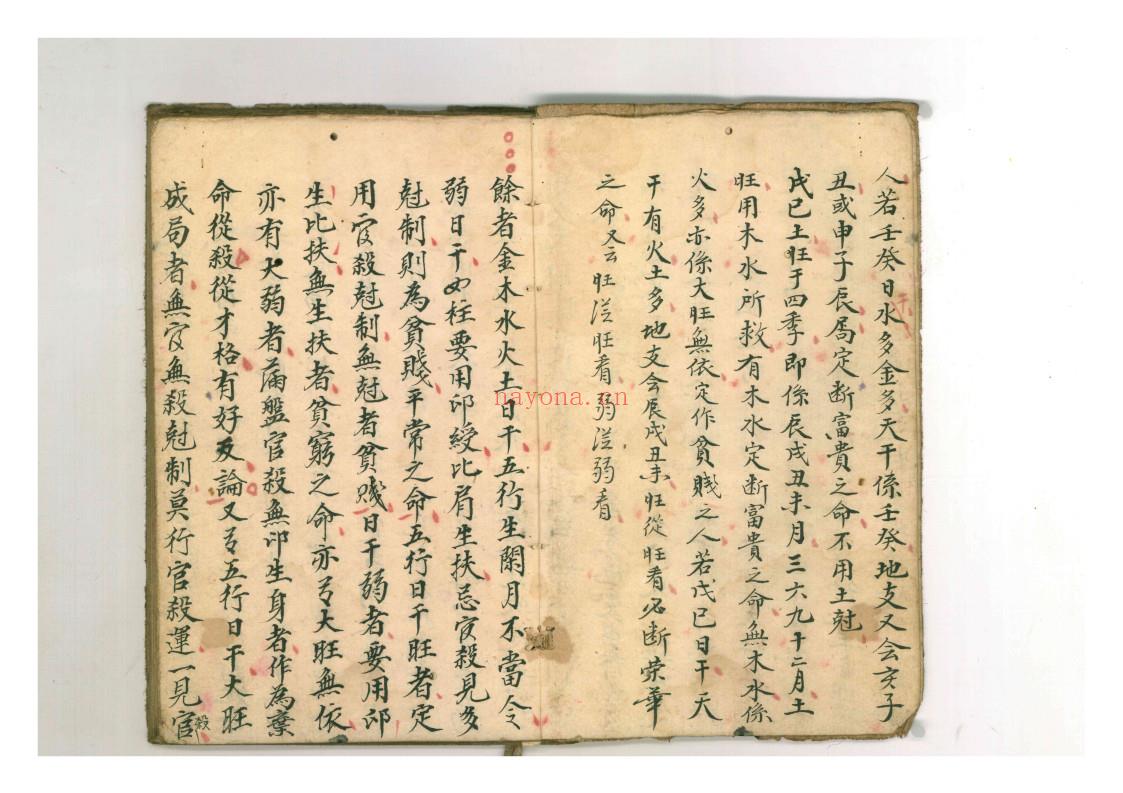 人若壬癸日水多金多天干係壬癸地支又会亥子
丑或申子辰局定断富貴之命不用土尅
戊巳土旺于四季即係辰戌丑未月三六九十二月土
旺用木水所救有木水定断富貴之命無木水係
火多亦係大旺無依定作貧賎之人若戊巳日干天
干有火土多地支会辰戌丑未旺從旺看必断荣華
之命又云旺從旺看弱從弱看
餘者金木水火土日干五行生閑月不當令
弱日干四柱要用印綬比肩生扶忌官殺見多
尅制則為貧賎平常之命五行日干旺者定
用官殺尅制無尅者貧賎日干弱者要用印
生比扶無生扶者貧窮之命亦有大旺無依
亦有大弱者滿盤官殺無印生身者作為棄
命從殺從才格有好反論又有五行日干大旺
成局者無官無殺尅制莫行官殺運一見官殺
nayona.cn